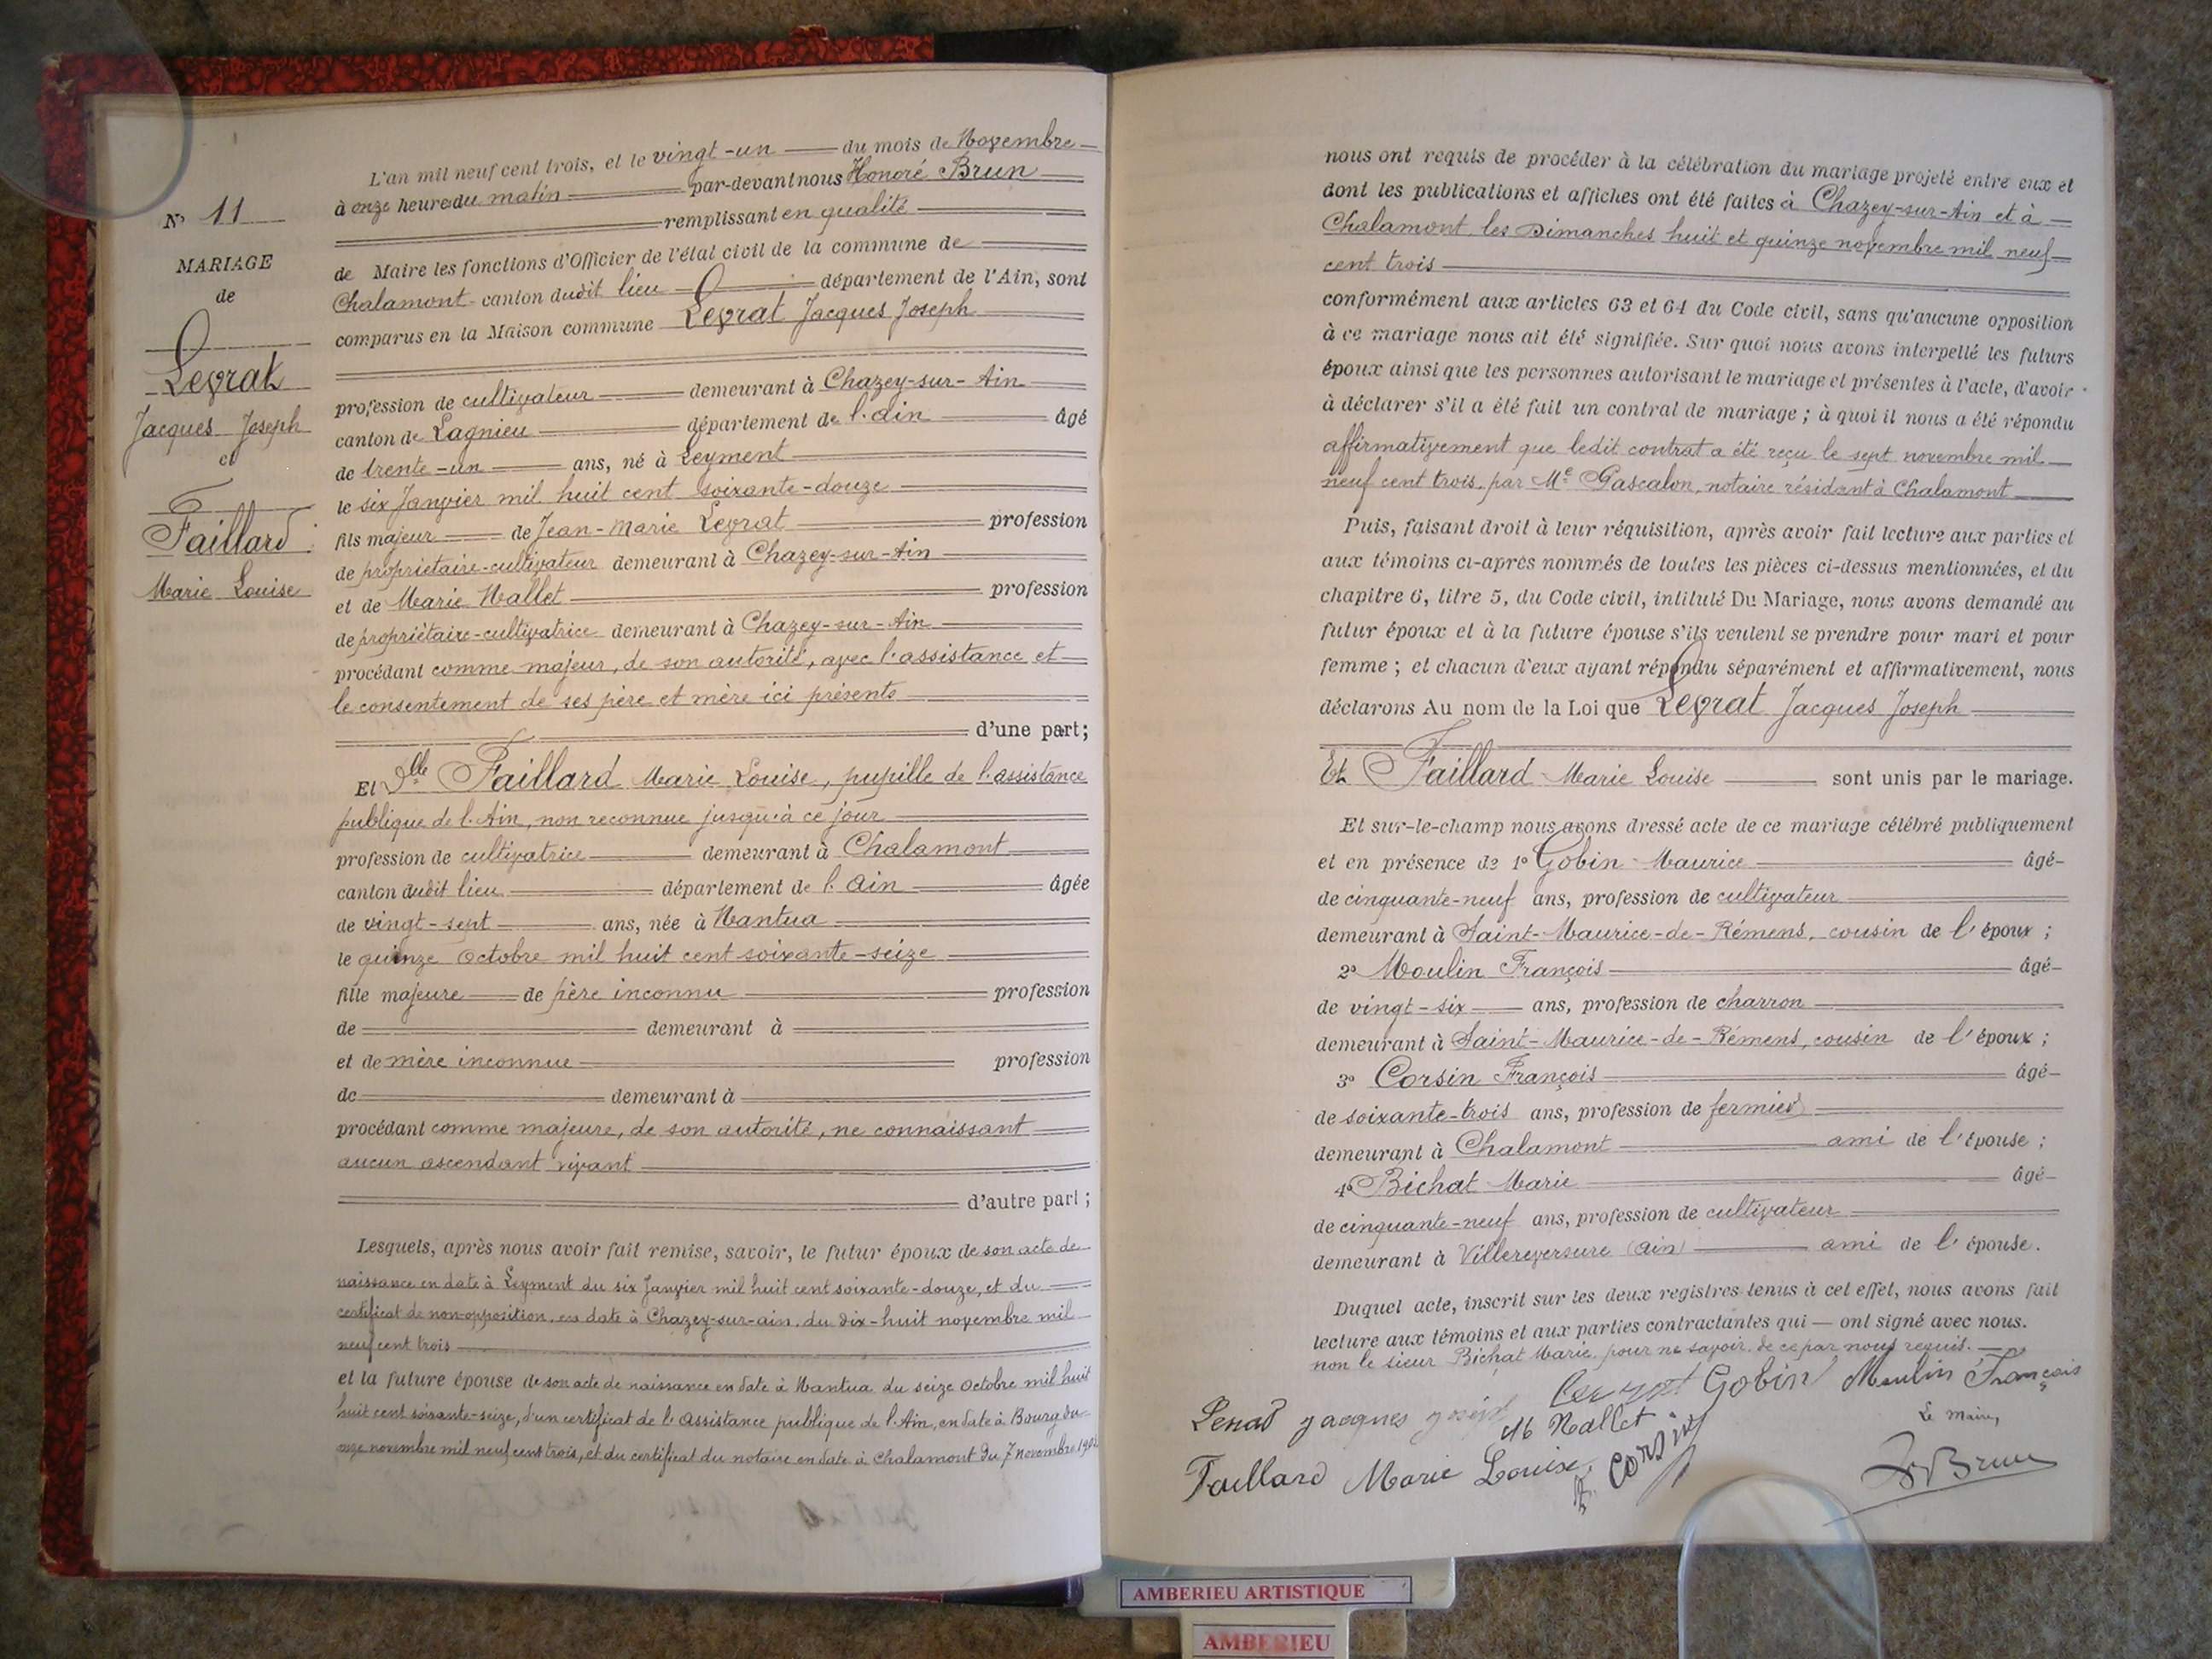 N° 11
MARIAGE
de
Levrat
Jacques Joseph
et
Faillard
Marie Louise
L'an mil neuf cent trois, et le vingt-un du mois de Novembre
à onze heures du matin par-devant nous Honoré Brun
remplissant en qualité
de Maire les fonctions d'Officier de l'état civil de la commune de
Chalamont canton dudit lieu département de l'Ain, sont
comparus en la Maison commune Levrat Jacques Joseph
profession de cultivateur demeurant à Chazey-sur-Ain
canton de Lagnieu département de l'ain âgé
de trente-un ans, né à Leyment
le six Janvier mil huit cent soixante-douze
fils majeur de Jean-Marie Levrat profession
de propriétaire-cultivateur demeurant à Chazey-sur-Ain
et de Marie Nallet profession
de propriétaire-cultivatrice demeurant à Chazey-sur-Ain
procédant comme majeur, de son autorité, avec l'assistance et
le consentement de ses père et mère ici présents
d'une part;
Et Dlle Faillard Marie Louise, pupille de l'assistance
publique de l'Ain, non reconnue jusqu'à ce jour
profession de cultivatrice demeurant à Chalamont
canton dudit lieu département de l'Ain âgée
de vingt-sept ans, née à Nantua
le quinze Octobre mil huit cent soixante-seize
fille majeure de père inconnu profession
de demeurant à
et de mère inconnue profession
de demeurant à
procédant comme majeure, de son autorité, ne connaissant
aucun ascendant vivant
d'autre part;
Lesquels, après nous avoir fait remise, savoir, le futur époux de son acte de
naissance en date à Leyment du six Janvier mil huit cent soixante-douze, et du
certificat de non-opposition, en date à Chazey-sur-ain, du dix-huit novembre mil
neuf cent trois
et la future épouse de son acte de naissance en date à Nantua du seize Octobre mil huit
huit cent soixante-seize, d'un certificat de l'Assistance publique de l'Ain, en date à Bourg du
onze novembre mil neuf cent trois, et du certificat du notaire en date à Chalamont du 7 novembre
nous ont requis de procéder à la célébration du mariage projeté entre eux et
dont les publications et affiches ont été faites à Chazey-sur-Ain et à
Chalamont, les Dimanches huit et quinze novembre mil neuf
cent trois
conformément aux articles 63 et 64 du Code civil, sans qu'aucune opposition
à ce mariage nous ait été signifiée. Sur quoi nous avons interpellé les futurs
époux ainsi que les personnes autorisant le mariage et présentes à l'acte, d'avoir
à déclarer s'il a été fait un contrat de mariage; à quoi il nous a été répondu
affirmativement que ledit contrat a été reçu le sept novembre mil
neuf cent trois, par Me Gascalon, notaire résidant à Chalamont
Puis, faisant droit à leur réquisition, après avoir fait lecture aux parties et
aux témoins ci-après nommés de toutes les pièces ci-dessus mentionnées, et du
chapitre 6, titre 5, du Code civil, intitulé Du Mariage, nous avons demandé au
futur époux et à la future épouse s'ils veulent se prendre pour mari et pour
femme; et chacun d'eux ayant répondu séparément et affirmativement, nous
déclarons Au nom de la Loi que Levrat Jacques Joseph
Et Faillard Marie Louise sont unis par le mariage.
Et sur-le-champ nous avons dressé acte de ce mariage célébré publiquement
et en présence de 1° Gobin Maurice âgé
de cinquante-neuf ans, profession de cultivateur
demeurant à Saint-Maurice-de-Rémens, cousin de l'époux;
2° Moulin François âgé
de vingt-six ans, profession de charron
demeurant à Saint-Maurice-de-Rémens, cousin de l'époux;
3° Corsin François âgé
de soixante-trois ans, profession de fermier
demeurant à Chalamont ami de l'épouse;
4° Bichat Marie âgé
de cinquante-neuf ans, profession de cultivateur
demeurant à Villereversure (ain) ami de l'épouse.
Duquel acte, inscrit sur les deux registres tenus à cet effet, nous avons fait
lecture aux témoins et aux parties contractantes qui — ont signé avec nous.
non le sieur Bichat Marie, pour ne savoir, de ce par nous requis.
Gobin Moulin François
jacques joseph Nallet Le Maire,
Faillard Marie Louise Corsin Brun
AMBERIEU ARTISTIQUE
AMBERIEU